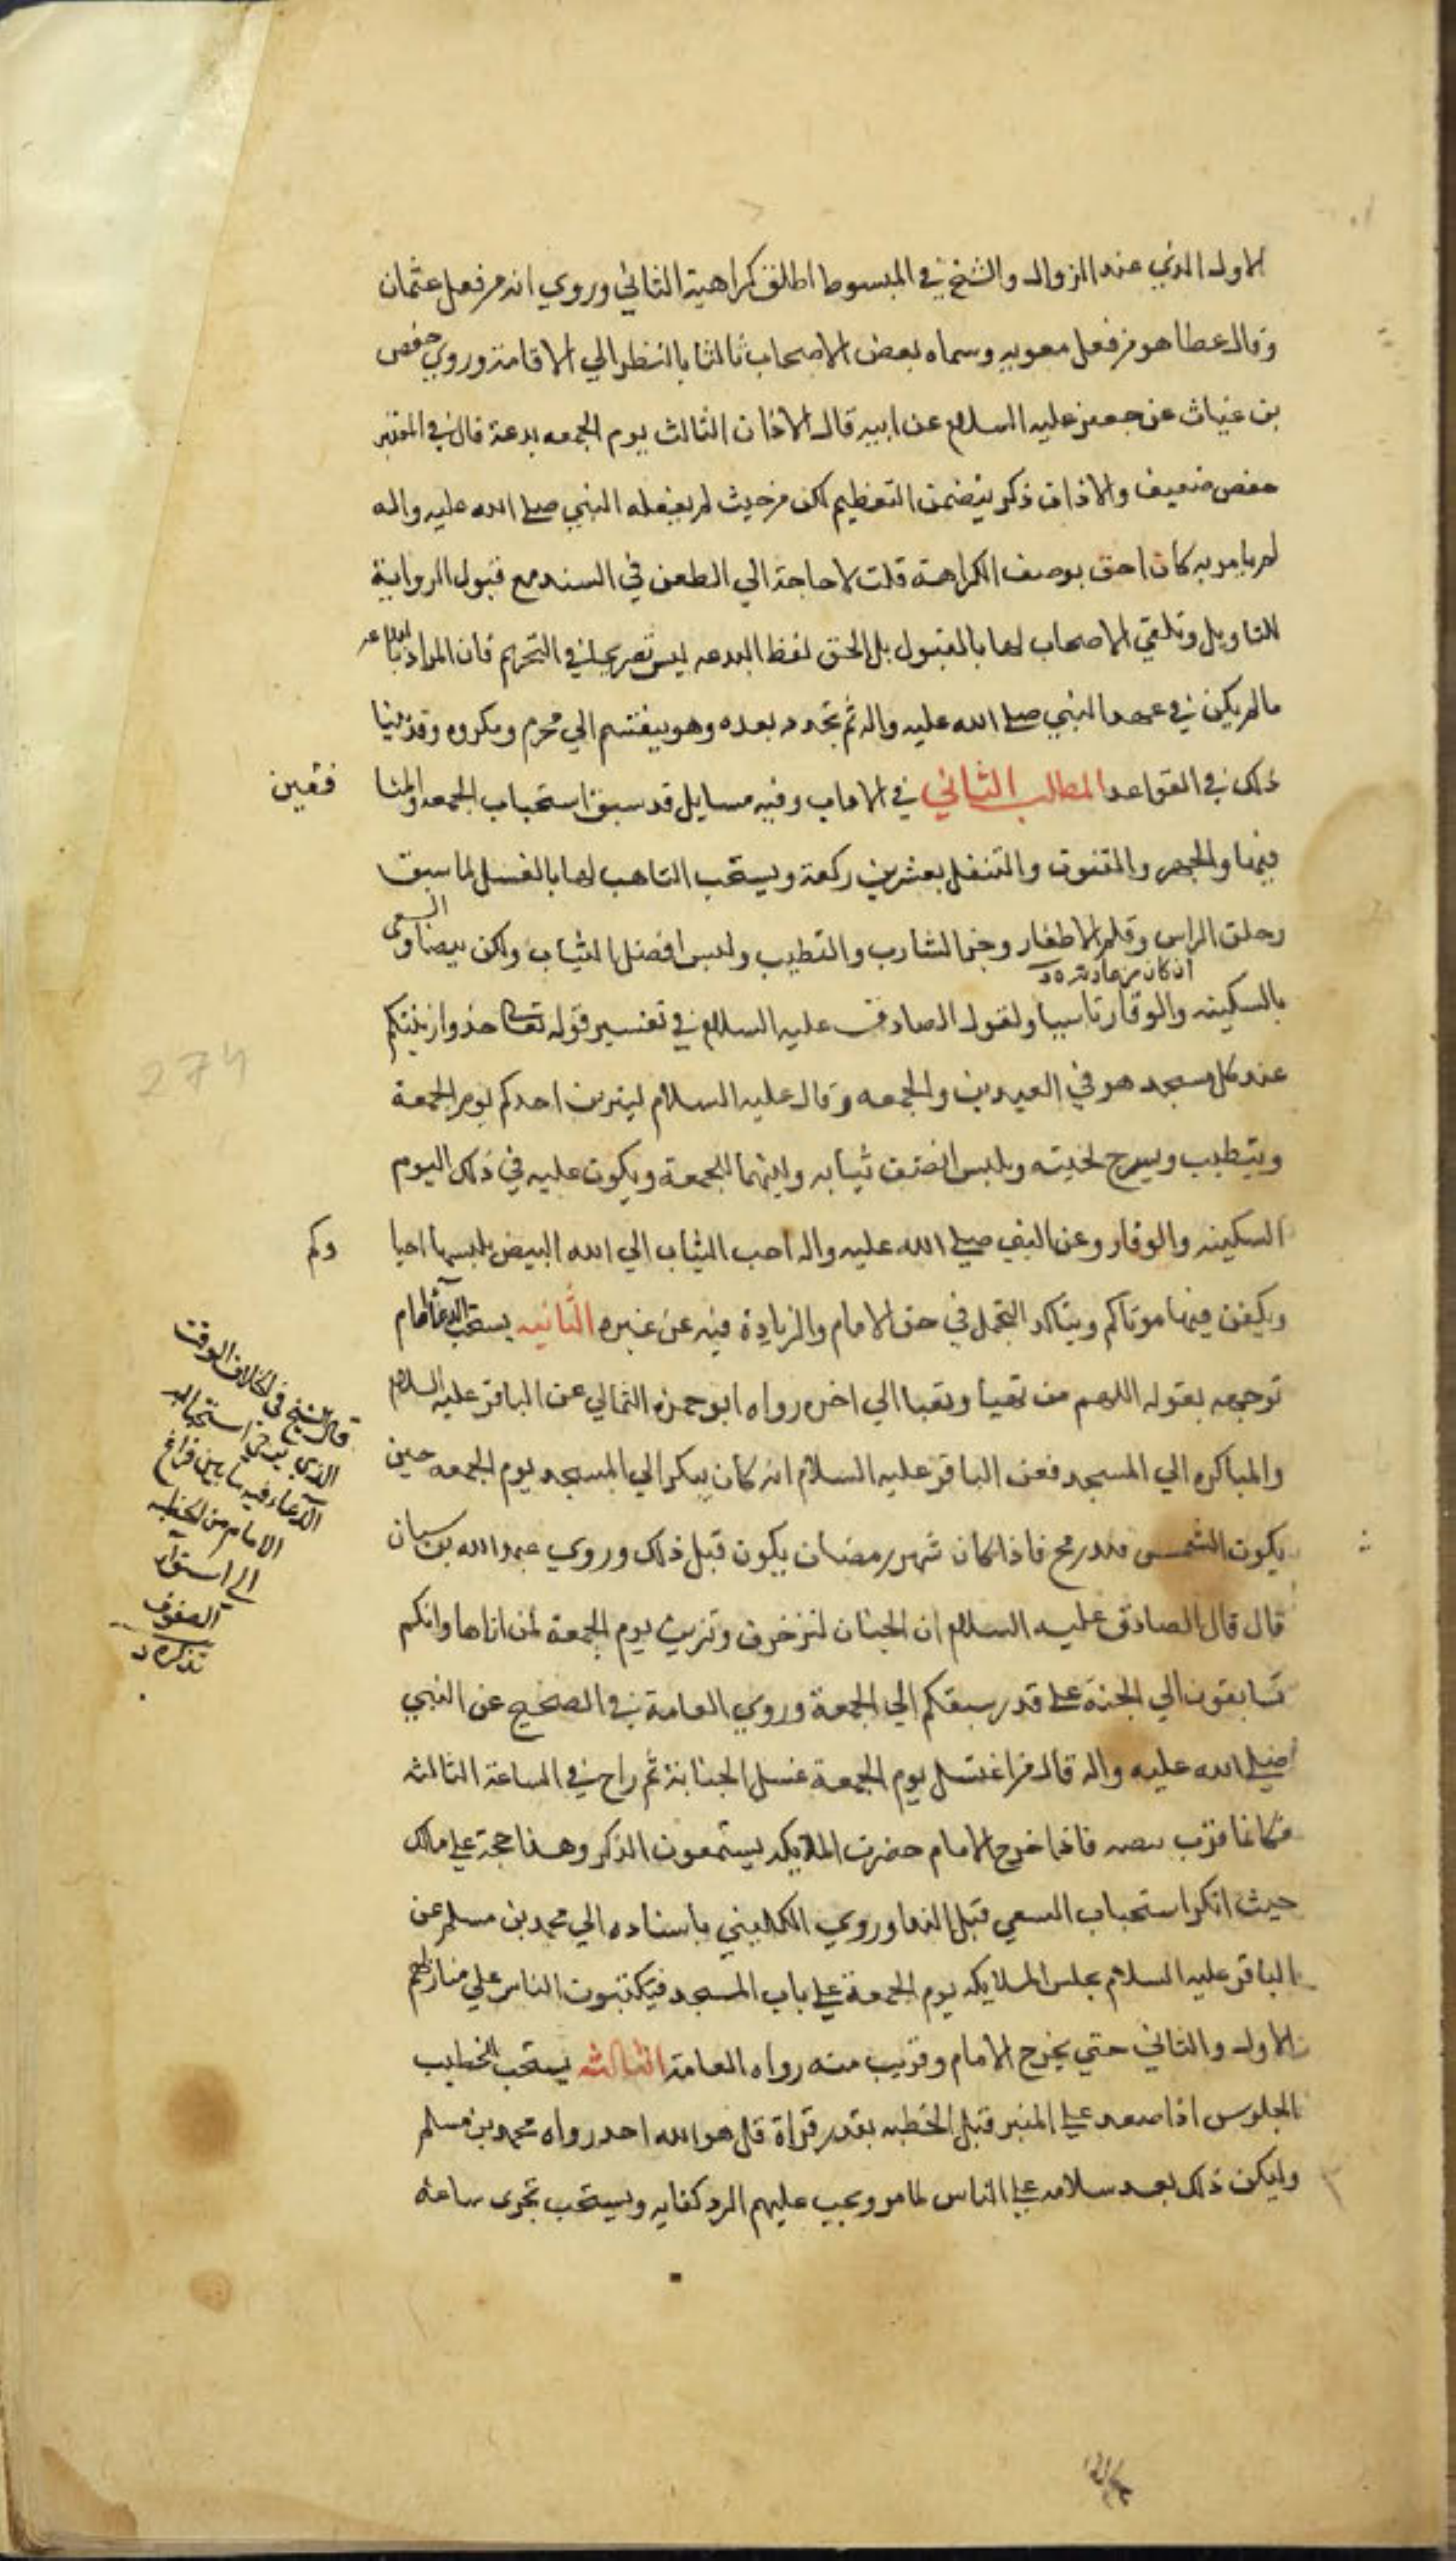 الاول الذي عند الزوال والشيخ في المبسوط اطلق كراهية الثاني وروي انه من فعل عثمان
وقال عطا هو من فعل معويه وسماه بعض الاصحاب ثالثا بالنظر الي الاقامة وروي حفص
بن غياث عن جعفر عليه السلام عن ابيه قال الاذان الثالث يوم الجمعه بدعة قال في المعتبر
حفص ضعيف والاذان ذكر يتضمن التعظيم لكن من حيث لم يفعله النبي صلي الله عليه واله
لم يامر به كان احق بوصف الكراهة قلت لا حاجة الي الطعن في السند مع قبول الرواية
للتاويل وتلقي الاصحاب لها بالقبول بل الحق لفظ البدعه ليس تصريحا في التحريم فان المراد بالبدعه
ما لم يكن في عهد النبي صلي الله عليه واله ثم تجدد بعده وهو ينقسم الي محرم ومكروه وقد بينا
ذلك في القواعد المطلب الثاني في الاداب وفيه مسايل قد سبق استحباب الجمعه والمنا
فقين
فيها والجهر والقنوت والتنفل بعشرين ركعة ويستحب التاهب لها بالغسل لما سبق
وحلق الراس وقلم الاظفار وجز الشارب والتطيب ولبس افضل الثياب ولكن بيضا والسعي
ان كان من عادته د
بالسكينه والوقار تاسيا ولقول الصادق عليه السلام في تفسير قوله تعالي خذوا زينتكم
عند كل مسجد هو في العيدين والجمعه وقال عليه السلام ليتزين احدكم يوم الجمعة
ويتطيب ويسرح لحيته ويلبس انظف ثيابه وليتهيا للجمعة ويكون عليه في ذلك اليوم
السكينه والوقار وعن النبي صلي الله عليه واله احب الثياب الي الله البيض يلبسها احيا
وكم
ويكفن فيها موتاكم ويتاكد التجمل في حق الامام والزيادة فيه عن غيره الثانيه يستحب الدعا امام
توجهه بقوله اللهم من تهيا وتعبا الي اخره رواه ابو حمزه الثمالي عن الباقر عليه السلام
والمباكره الي المسجد فعن الباقر عليه السلام انه كان يبكر الي المسجد يوم الجمعه حين
يكون الشمس قدر رمح فاذا كان شهر رمضان يكون قبل ذلك وروي عبد الله بن سنان
قال قال الصادق عليه السلام ان الجنان لتزخرف وتزين يوم الجمعة لمن اتاها وانكم
تسابقون الي الجنة علي قدر سبقكم الي الجمعة وروي العامة في الصحيح عن النبي
صلي الله عليه واله قال من اغتسل يوم الجمعة غسل الجنابة ثم راح في الساعة الثالثه
فكانما قرب بيضه فاذا خرج الامام حضرت الملايكه يستمعون الذكر وهذا حجة علي مالك
حيث انكر استحباب السعي قبل الندا وروي الكليني باسناده الي محمد بن مسلم عن
الباقر عليه السلام يجلس الملايكه يوم الجمعة علي باب المسجد فيكتبون الناس علي منازلهم
الاول والثاني حتي يخرج الامام وقريب منه رواه العامة الثالثه يستحب للخطيب
الجلوس اذا صعد علي المنبر قبل الخطبه بقدر قراة قل هو الله احد رواه محمد بن مسلم
وليكن ذلك بعد سلامه علي الناس لما مر ويجب عليهم الرد كفايه ويستحب تحري ساعة
قال الشيخ في الخلاف الوقت
الذي يرجي استجابة
الدعاء فيه ما بين فراغ
الامام من الخطبه
الي استواء
الصفوف
تذكره د
274